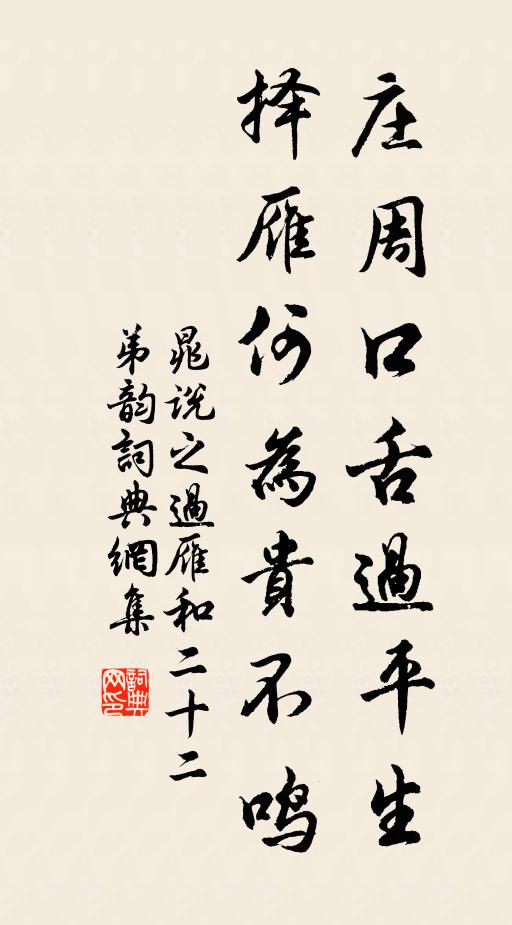 庄周口舌過平生
择雁何為貴不鸣
晁说之過雁和二十二
弟韵詞典網集
詞典网印